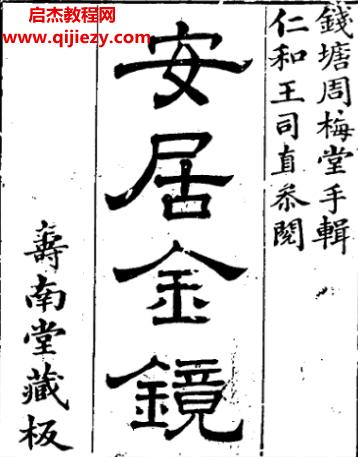 启杰教程网
www.qijiezy.com
錢塘周梅堂手輯
仁和王司直叅閱
安居金鏡
壽南堂藏板